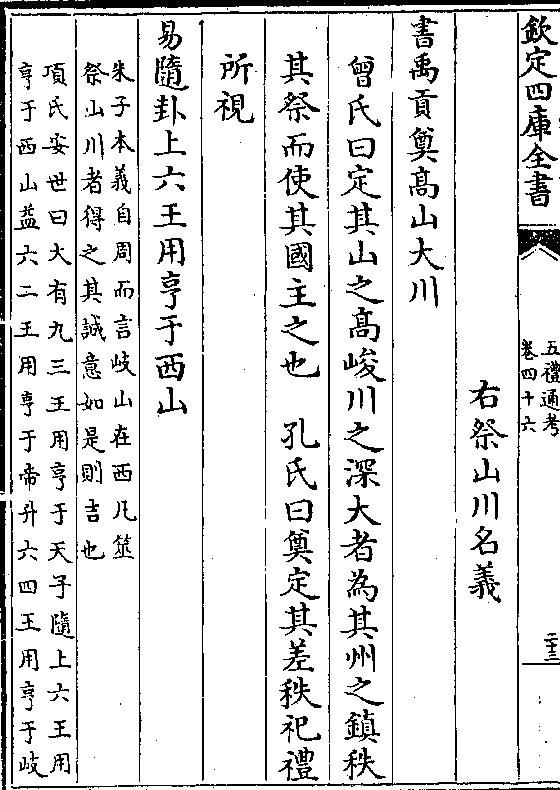 欽定四庫全書
五禮通考
卷四十六
二十三
右祭山川名義
書禹貢奠髙山大川
曾氏曰定其山之髙峻川之深大者為其州之鎮秩
其祭而使其國主之也　孔氏曰奠定其差秩祀禮
所視
易隨卦上六王用亨于西山
朱子本義自周而言岐山在西凡筮
祭山川者得之其誠意如是則吉也
項氏安世曰大有九三王用亨于天子隨上六王用
亨于西山益六二王用亨于帝升六四王用亨于岐